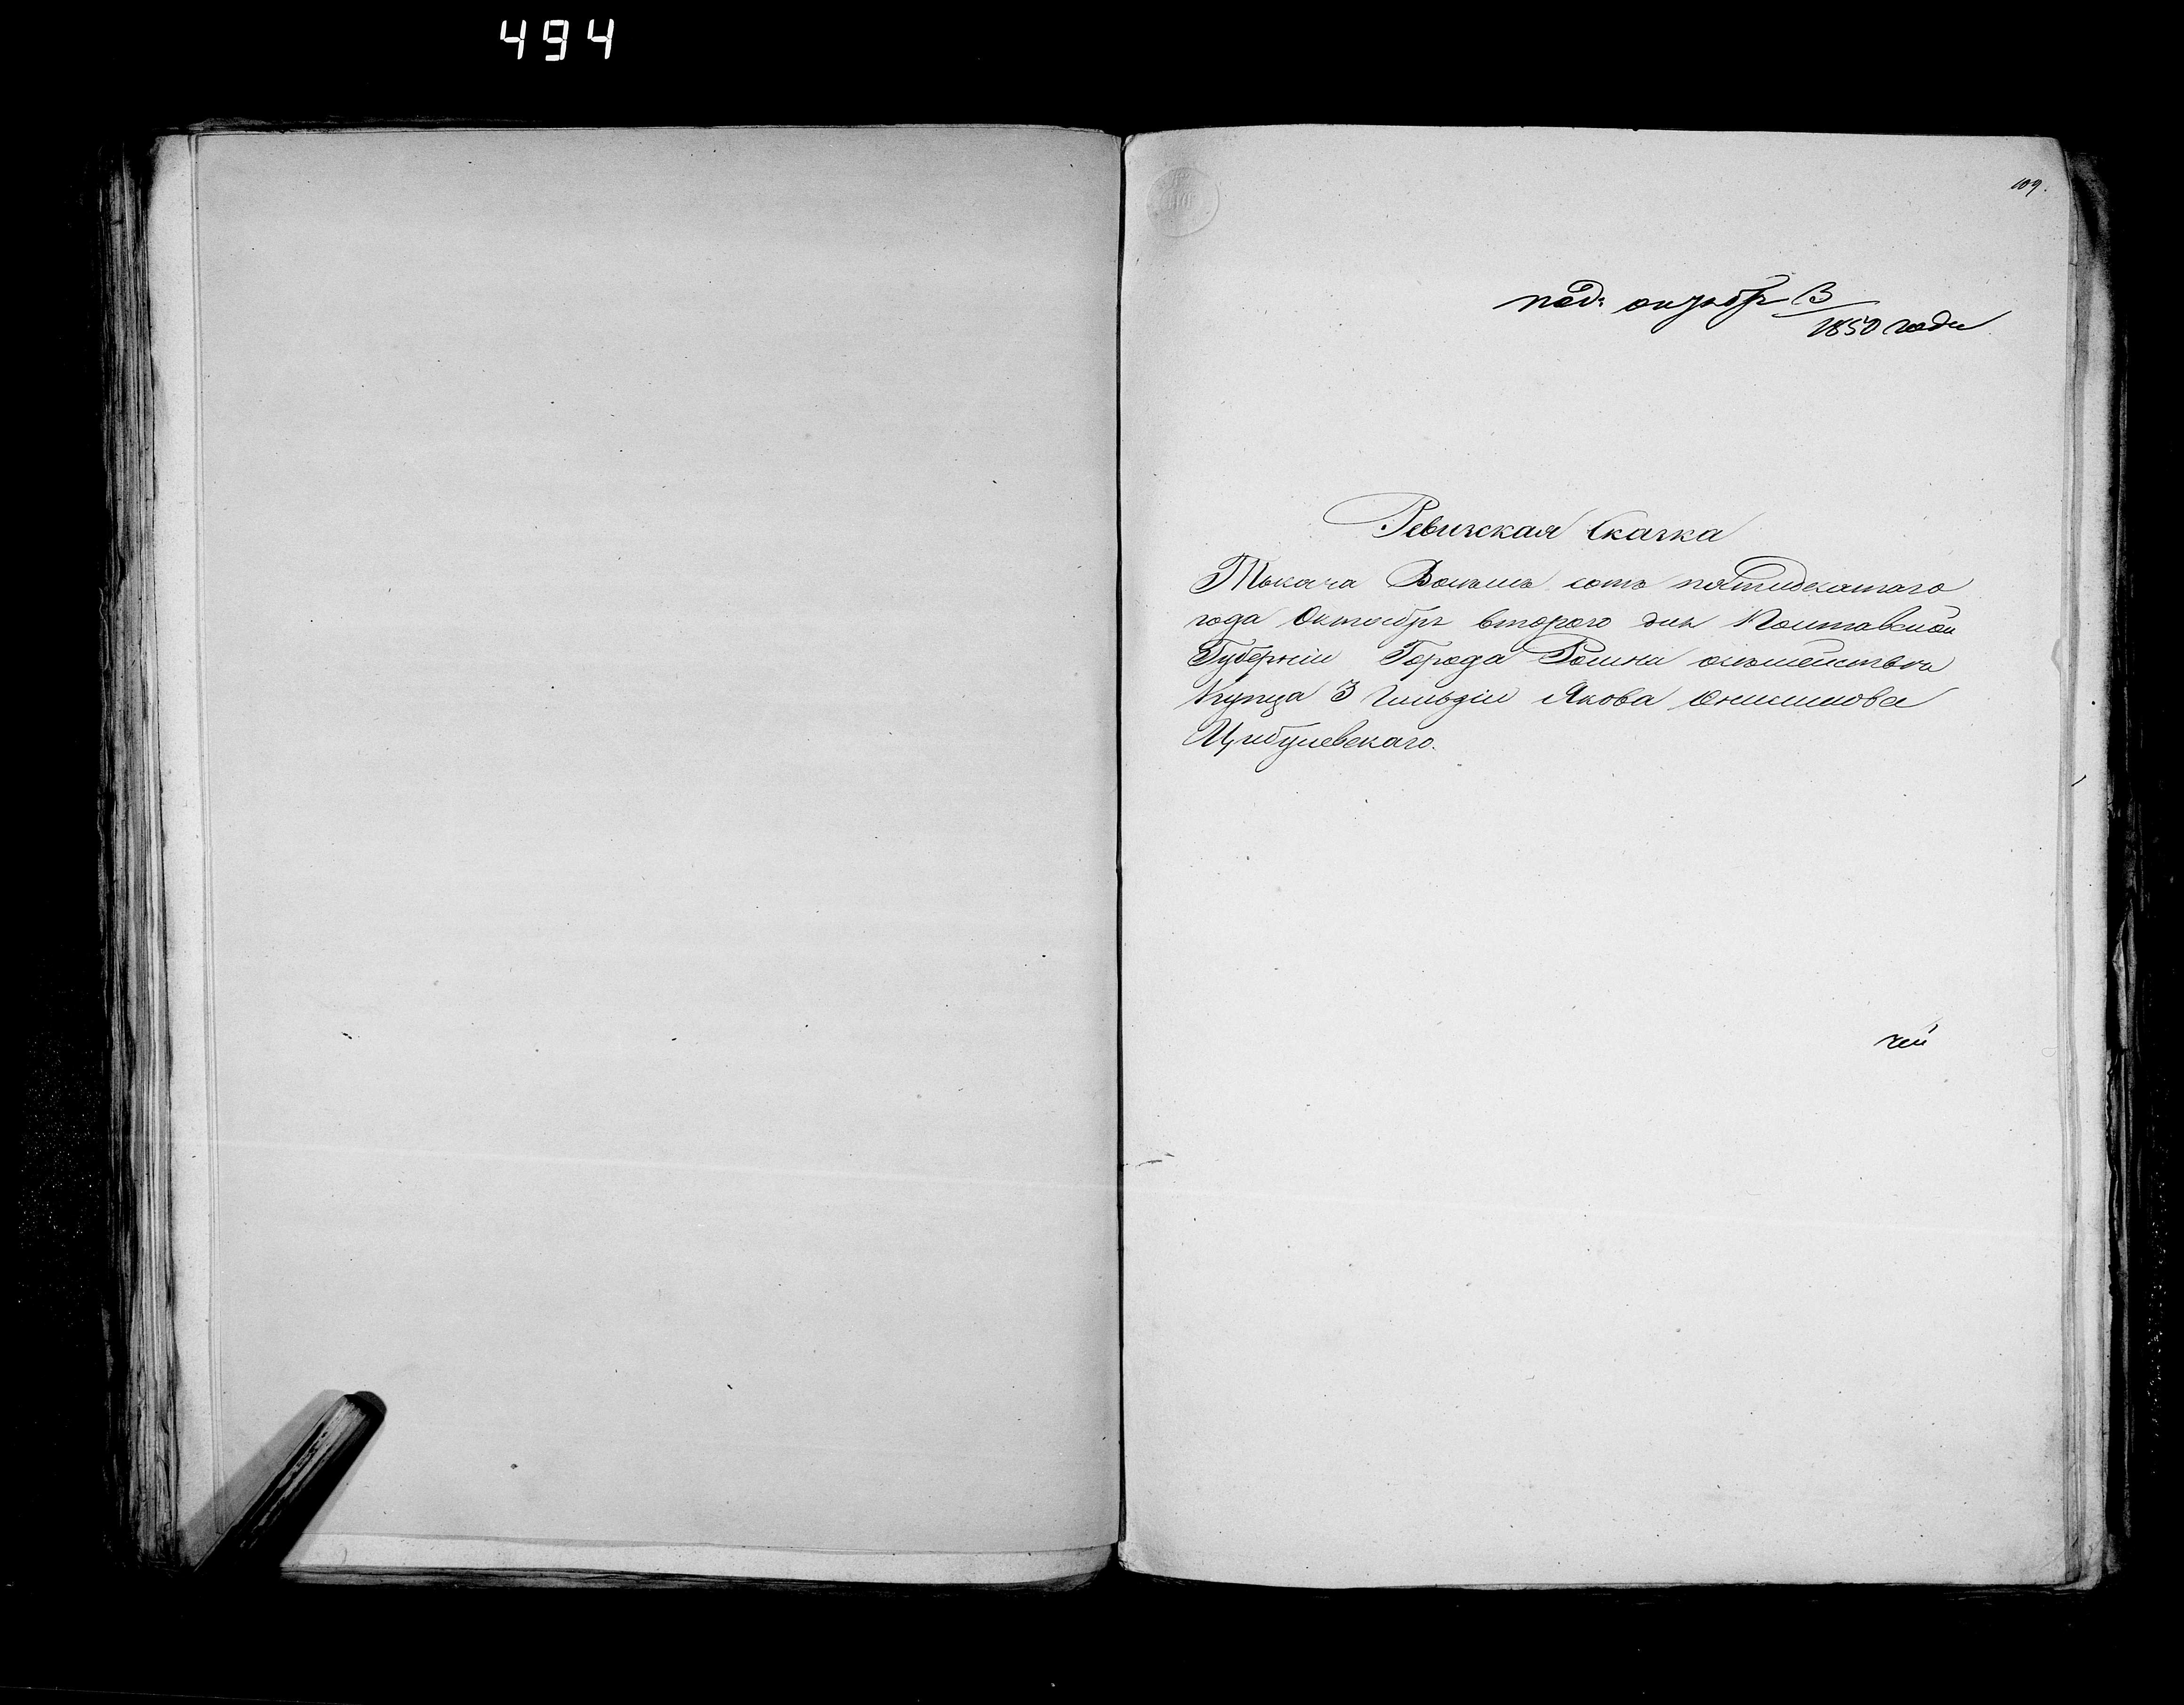 494
109.
под: октябр 3
1850 года
Ревизская Сказка
Тысяча Восемь сотъ пятидесятаго
года Октября второго дня Полтавской
Губерніи Города Ромна
Купца 3 Гильдіи Якова Онисимова
Цибулевскаго.